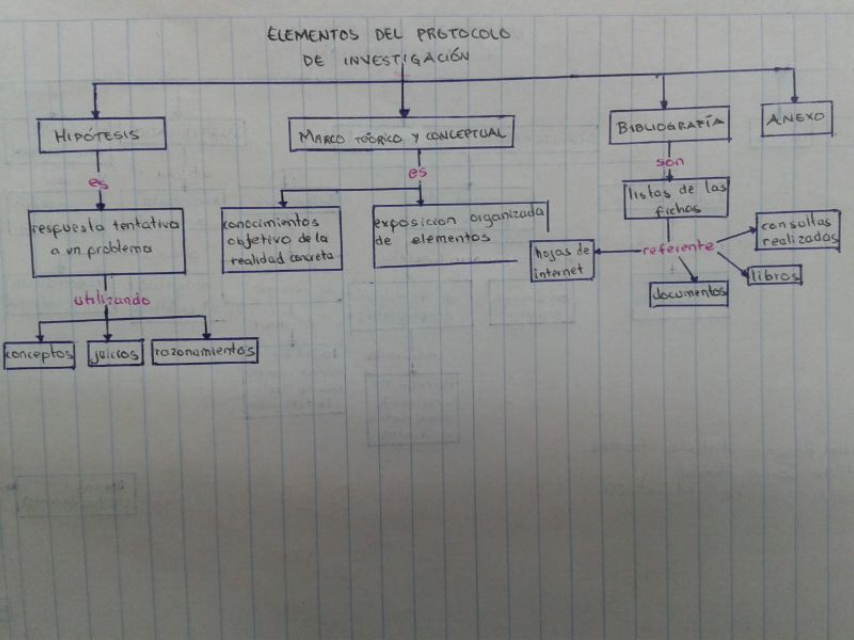 ELEMENTOS DEL PROTOCOLO
DE INVESTIGACIÓN
HIPÓTESIS
MARCO TEÓRICO Y CONCEPTUAL
BIBLIOGRAFÍA
ANEXO
es
es
son
respuesta tentativa
a un problema
conocimientos
objetivo de la
realidad concreta
exposicion organizada
de elementos
listas de las
fichas
referente
consultas
realizadas
hojas de
internet
documentos
libros
utilizando
conceptos
juicios
razonamientos